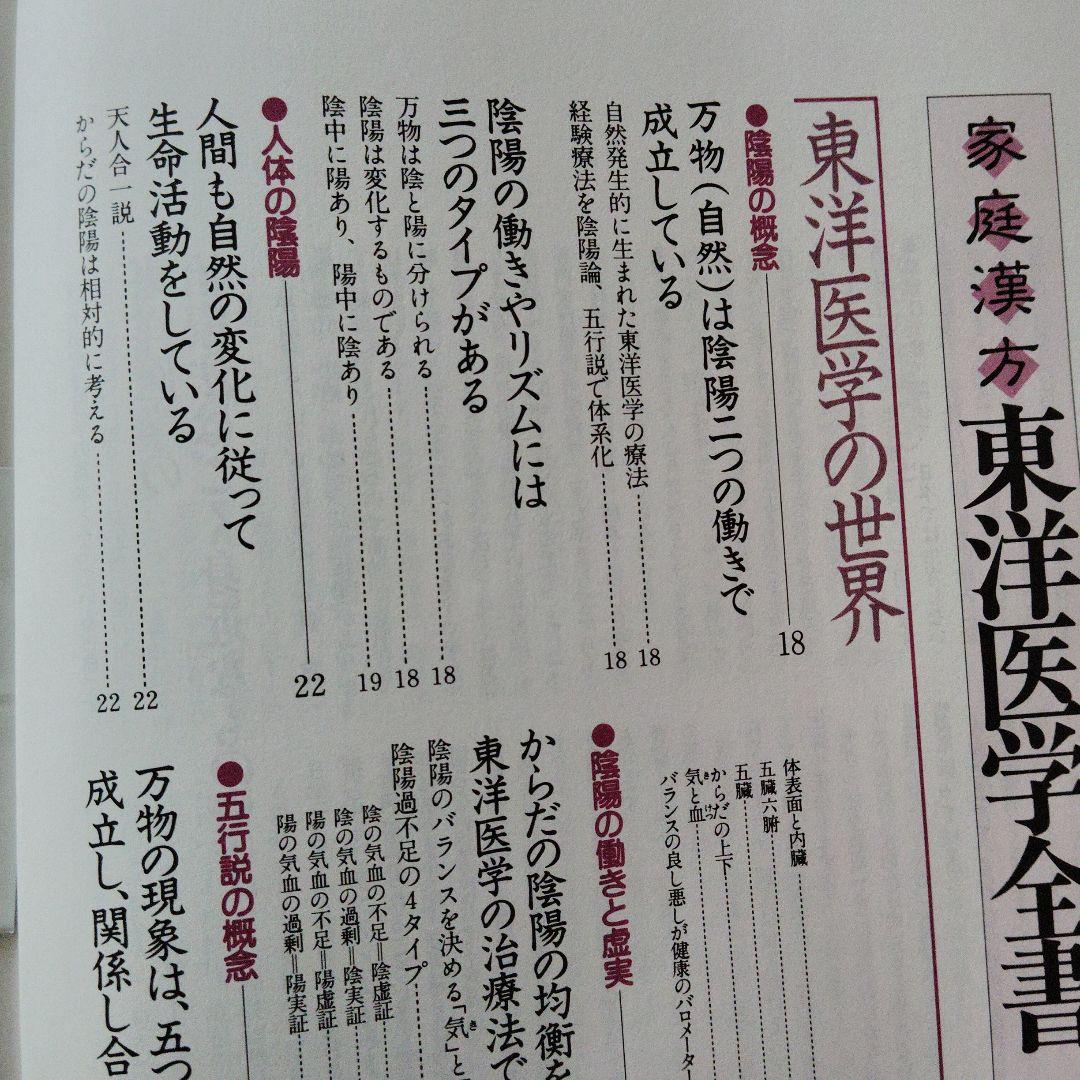 家庭漢方
東洋医学全書
東洋医学の世界
●陰陽の概念 18
万物(自然)は陰陽二つの働きで
成立している
自然発生的に生まれた東洋医学の療法 18
経験療法を陰陽論、五行説で体系化 18
陰陽の働きやリズムには
三つのタイプがある 18
万物は陰と陽に分けられる 18
陰陽は変化するものである 19
陰中に陽あり、陽中に陰あり
●人体の陰陽 22
人間も自然の変化に従って
生命活動をしている
天人合一説 22
からだの陰陽は相対的に考える 22
体表面と内臓
五臓六腑
五臓
からだの上下
気と血
バランスの良し悪しが健康のバロメーター
●陰陽の働きと虚実
からだの陰陽の均衡を
東洋医学の治療法で
陰陽のバランスを決める「気」と
陰陽過不足の4タイプ
陰の気血の不足=陰虚証
陰の気血の過剰=陰実証
陽の気血の不足=陽虚証
陽の気血の過剰=陽実証
●五行説の概念
万物の現象は、五つ
成立し、関係し合